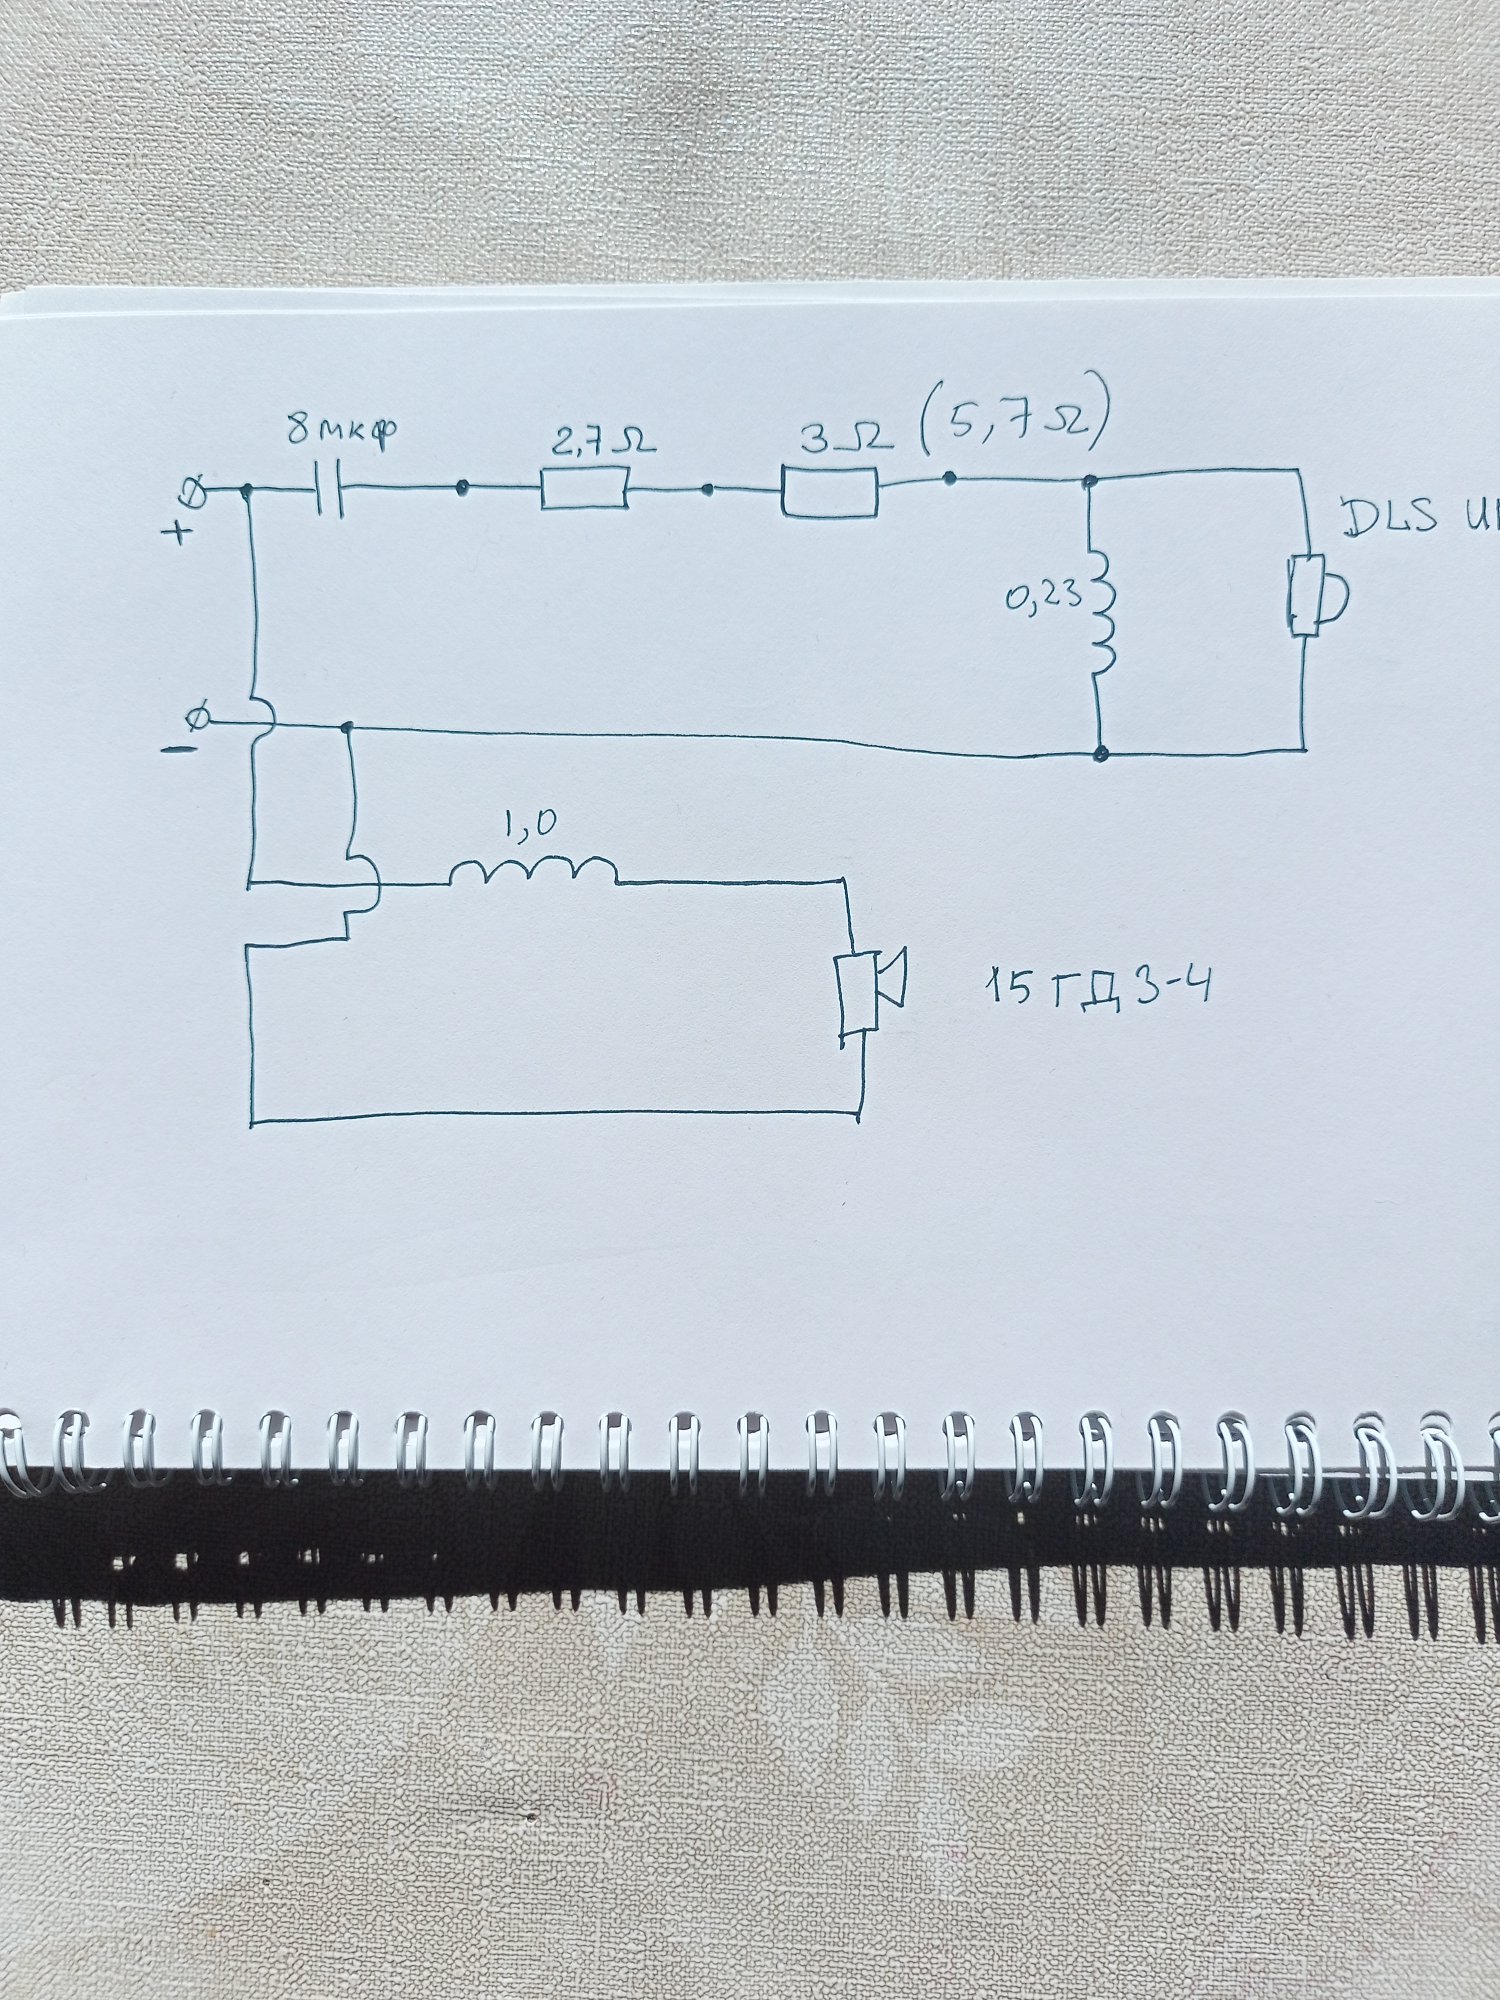 8мкф
2,7Ω
3Ω (5,7Ω)
+
DLS
0,23
−
1,0
15 ГД 3-4